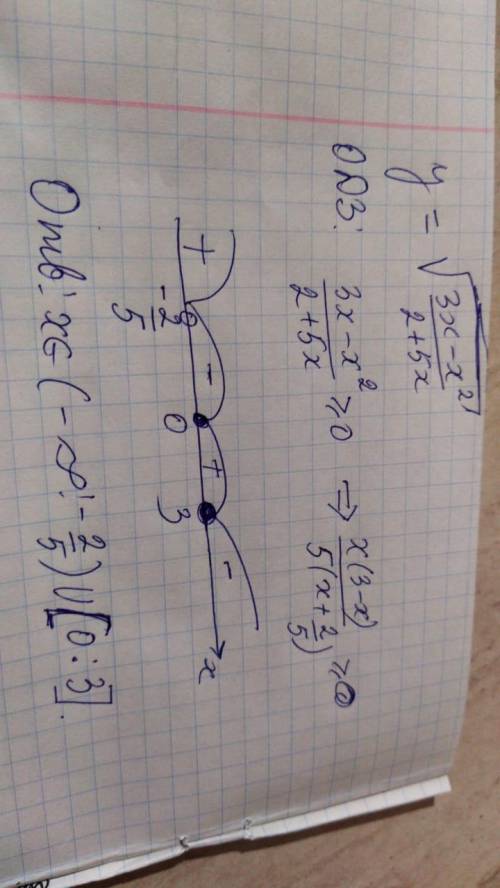 y = √((3x - x²)/(2 + 5x))
ОДЗ: (3x - x²)/(2 + 5x) ≥ 0 ⇒ x(3 - x)/(5(x + 2/5)) ≥ 0
+ - + -
-2/5 0 3 x
Отв: x∈(-∞; -2/5)∪[0; 3].